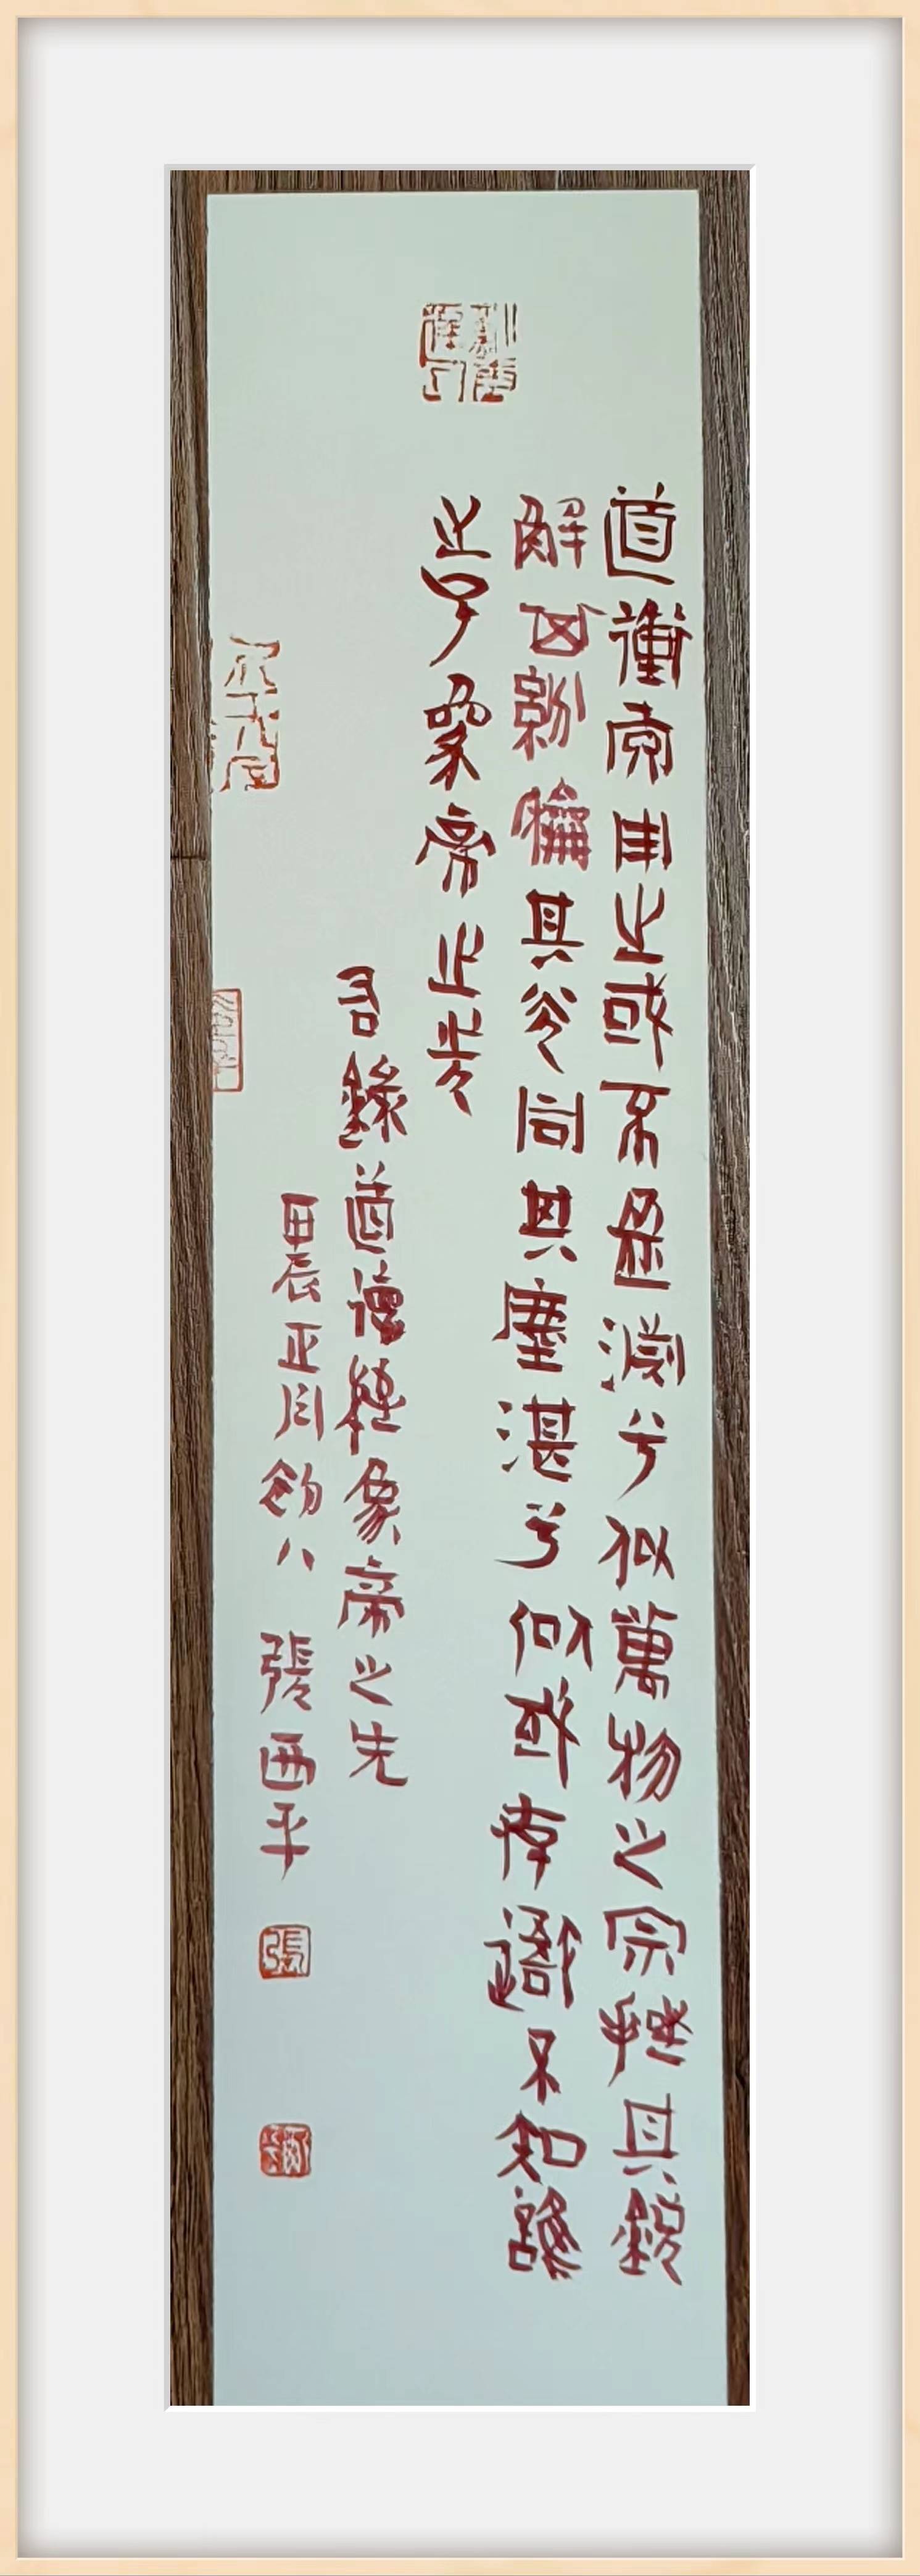 道衝而用之或不盈淵兮似萬物之宗挫其銳
解其紛龢其光同其塵湛兮似或存吾不知誰
之子象帝之先
右錄道德經象帝之先
甲辰正月初八 張西平
張